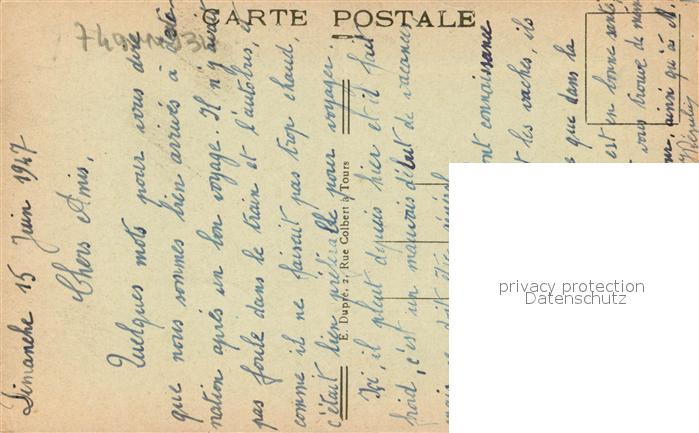 CARTE POSTALE
Dimanche 15 Juin 1947
Chers Amis,
Quelques mots pour vous dire
que nous sommes bien arrivés à desti-
nation après un bon voyage. Il n'y avait
pas foule dans le train et l'autobus, et
comme il ne faisait pas trop chaud,
c'était bien préférable pour voyager.
Ici, il pleut depuis hier et il fait
froid, c'est un mauvais début de vacances
mais
ont connaissance
les vaches, ils
que dans la
est en bonne santé
vous trouve de même
ainsi qu'à M.
E. Dupré, 2, Rue Colbert à Tours
privacy protection
Datenschutz